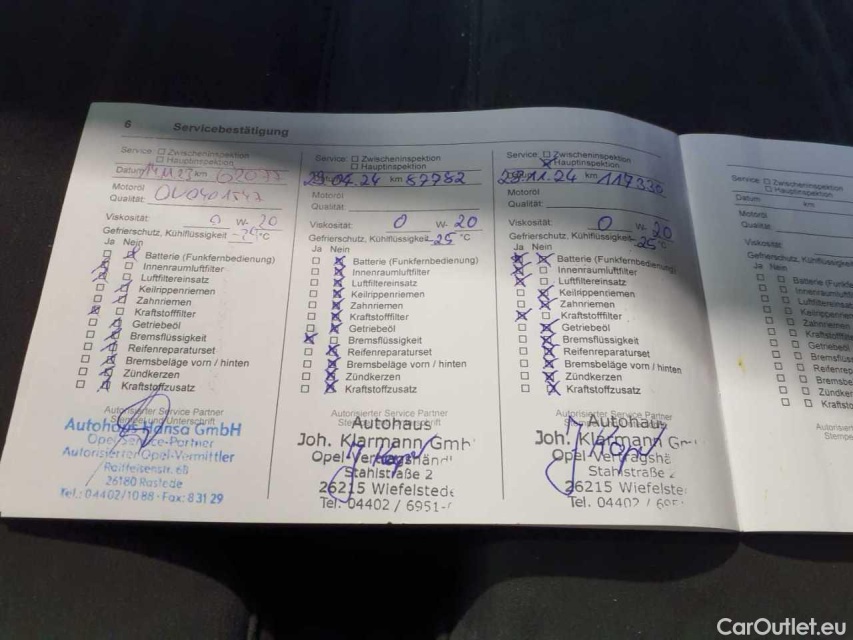 6 Servicebestätigung
Service: Zwischeninspektion
Hauptinspektion
Datum 14.11.23 km 62077
Motoröl
Qualität: OV0401547
Viskosität: 0 W- 20
Gefrierschutz, Kühlflüssigkeit -25 °C
Ja Nein
Batterie (Funkfernbedienung)
Innenraumluftfilter
Luftfiltereinsatz
Keilrippenriemen
Zahnriemen
Kraftstofffilter
Getriebeöl
Bremsflüssigkeit
Reifenreparaturset
Bremsbeläge vorn / hinten
Zündkerzen
Kraftstoffzusatz
Autorisierter Service Partner
Stempel und Unterschrift
Autohaus Hansa GmbH
Opel-Service-Partner
Autorisierter Opel-Vermittler
Raiffeisenstr. 68
26180 Rastede
Tel.: 04402/10 88 · Fax: 8 31 29
Service: Zwischeninspektion
Hauptinspektion
29.04.24 km 87782
Motoröl
Qualität:
Viskosität: 0 W- 20
Gefrierschutz, Kühlflüssigkeit -25 °C
Ja Nein
Batterie (Funkfernbedienung)
Innenraumluftfilter
Luftfiltereinsatz
Keilrippenriemen
Zahnriemen
Kraftstofffilter
Getriebeöl
Bremsflüssigkeit
Reifenreparaturset
Bremsbeläge vorn / hinten
Zündkerzen
Kraftstoffzusatz
Autorisierter Service Partner
Autohaus
Joh. Klarmann Gmb
Opel Vertragshänd
Stahlstraße 2
26215 Wiefelstede
Tel. 04402 / 6951-
Service: Zwischeninspektion
Hauptinspektion
29.11.24 km 117336
Motoröl
Qualität:
Viskosität: 0 W- 20
Gefrierschutz, Kühlflüssigkeit -25 °C
Ja Nein
Batterie (Funkfernbedienung)
Innenraumluftfilter
Luftfiltereinsatz
Keilrippenriemen
Zahnriemen
Kraftstofffilter
Getriebeöl
Bremsflüssigkeit
Reifenreparaturset
Bremsbeläge vorn / hinten
Zündkerzen
Kraftstoffzusatz
Autorisierter Service Partner
Autohau
Joh. Klarmann G
Opel Vertragshä
Stahlstraße 2
26215 Wiefelste
Tel. 04402 / 695
Service: Zwischeninspektion
Hauptinspektion
Datum km
Motoröl
Qualität:
Viskosität:
Gefrierschutz, Kühlflüssigkei
Ja Nein
Batterie (Funkfe
Innenraumluftf
Luftfiltereinsat
Keilrippenriem
Zahnriemen
Kraftstofffilte
Getriebeöl
Bremsflüssi
Reifenrepar
Bremsbe
Zündkerz
Kraftsto
Autorisiert
Stempe
CarOutlet.eu